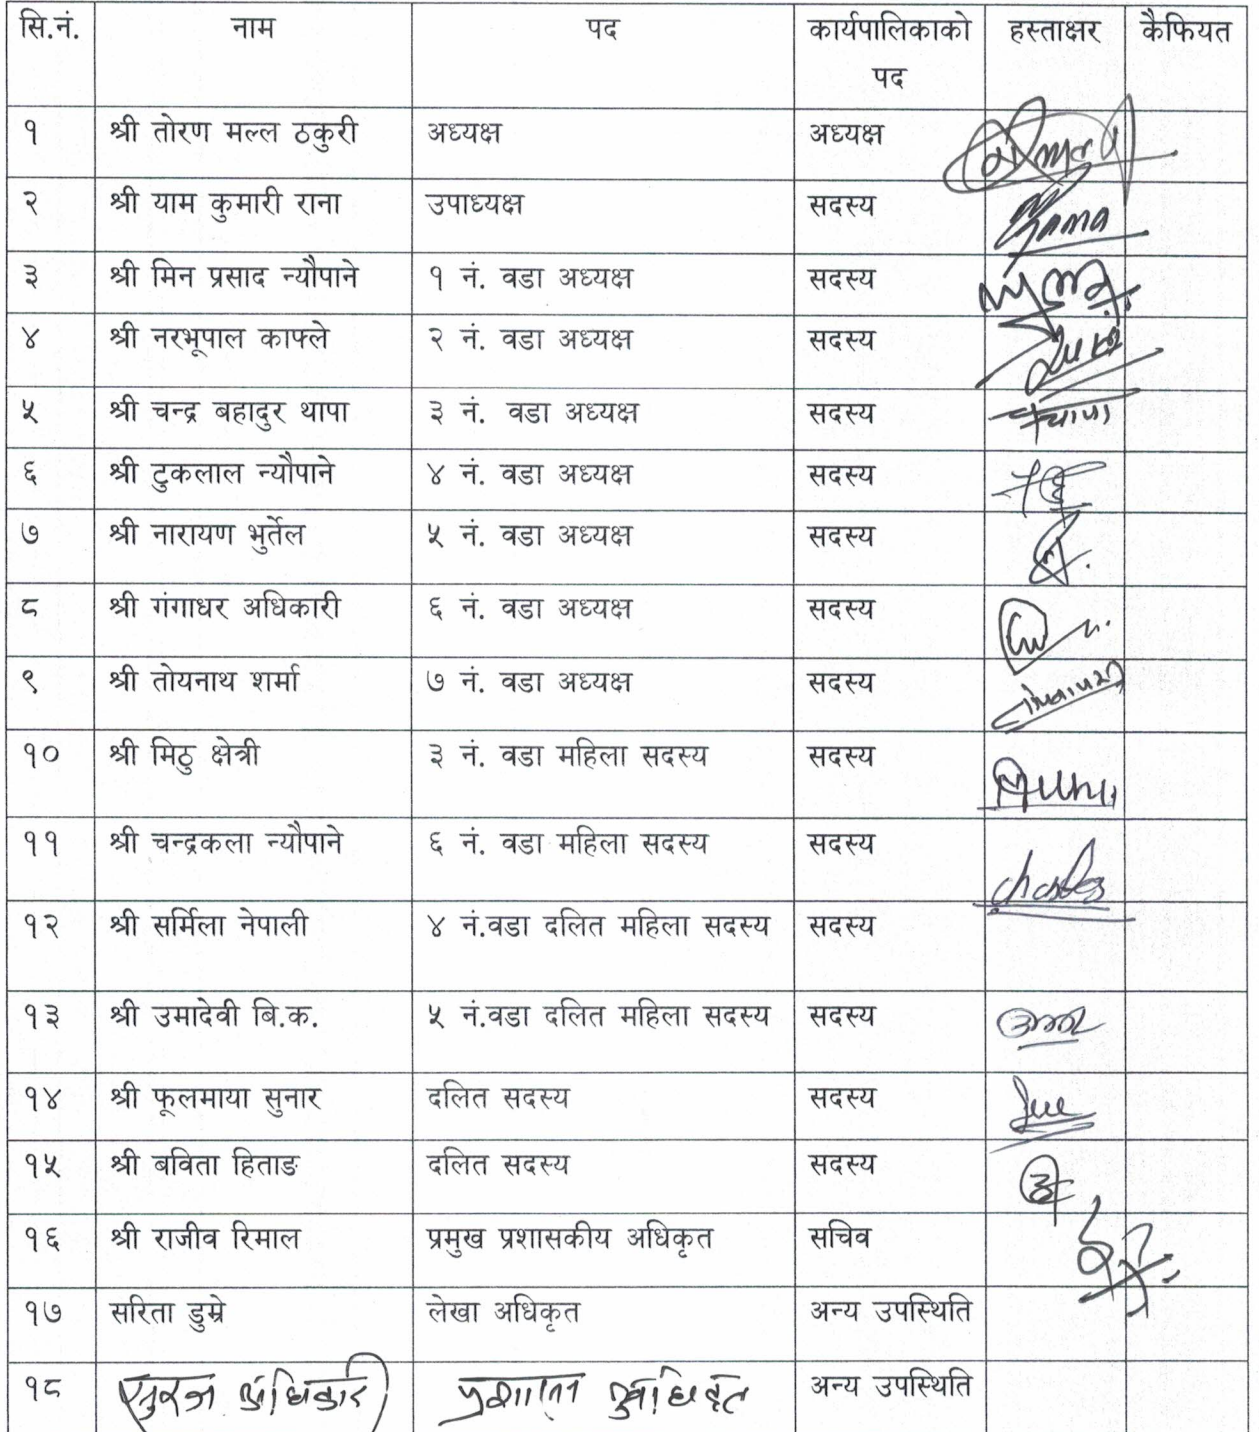 सि.नं. नाम पद कार्यपालिकाको पद हस्ताक्षर कैफियत
१ श्री तोरण मल्ल ठकुरी अध्यक्ष अध्यक्ष
२ श्री याम कुमारी राना उपाध्यक्ष सदस्य
३ श्री मिन प्रसाद न्यौपाने १ नं. वडा अध्यक्ष सदस्य
४ श्री नरभूपाल काफ्ले २ नं. वडा अध्यक्ष सदस्य
५ श्री चन्द्र बहादुर थापा ३ नं. वडा अध्यक्ष सदस्य
६ श्री टुकलाल न्यौपाने ४ नं. वडा अध्यक्ष सदस्य
७ श्री नारायण भुर्तेल ५ नं. वडा अध्यक्ष सदस्य
८ श्री गंगाधर अधिकारी ६ नं. वडा अध्यक्ष सदस्य
९ श्री तोयनाथ शर्मा ७ नं. वडा अध्यक्ष सदस्य
१० श्री मिठु क्षेत्री ३ नं. वडा महिला सदस्य सदस्य
११ श्री चन्द्रकला न्यौपाने ६ नं. वडा महिला सदस्य सदस्य
१२ श्री सर्मिला नेपाली ४ नं.वडा दलित महिला सदस्य सदस्य
१३ श्री उमादेवी बि.क. ५ नं.वडा दलित महिला सदस्य सदस्य
१४ श्री फूलमाया सुनार दलित सदस्य सदस्य
१५ श्री बविता हिताङ दलित सदस्य सदस्य
१६ श्री राजीव रिमाल प्रमुख प्रशासकीय अधिकृत सचिव
१७ सरिता डुम्रे लेखा अधिकृत अन्य उपस्थिति
१८ अधिकारी अधिकृत अन्य उपस्थिति